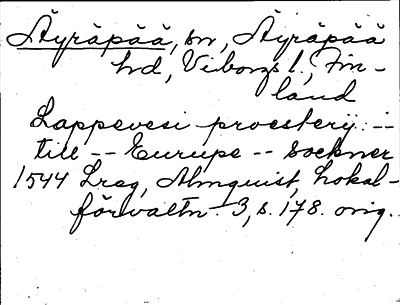 Äyräpää, sn, Äyräpää
hd, Viborgs l., Fin-
land
Lappevesi proesterij. --
till -- Eurupe -- sockner
1544 Lreg, Almquist, Lokal-
förvaltn. 3, s. 178. orig.